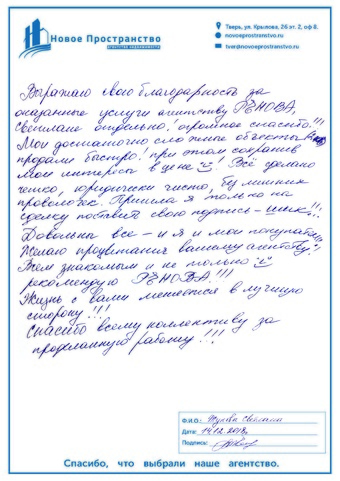 Новое Пространство
агентство недвижимости
Тверь, ул. Крылова, 26 эт. 2, оф 8.
novoeprostranstvo.ru
tver@novoeprostranstvo.ru
Выражаю свою благодарность за
оказанные услуги агентству РЕНОВА,
Светлане отдельно, огромное спасибо!!!
Мои достаточно сложные объекты
продали быстро! при этом сохранив
мои интересы в цене! Всё сделано
четко, юридически чисто, без лишних
проволочек. Пришла я только на
сделку поставить свою подпись – шик!!!
Довольны все – и я и мои покупатели!!!
Желаю процветания вашему агентству
Всем знакомым и не только
рекомендую РЕНОВА!!!
Жизнь с вами меняется в лучшую
сторону!!!
Спасибо всему коллективу за
проделанную работу!!!
Ф.И.О.: Светлана
Дата: 14.12.2018
Подпись:
Спасибо, что выбрали наше агентство.